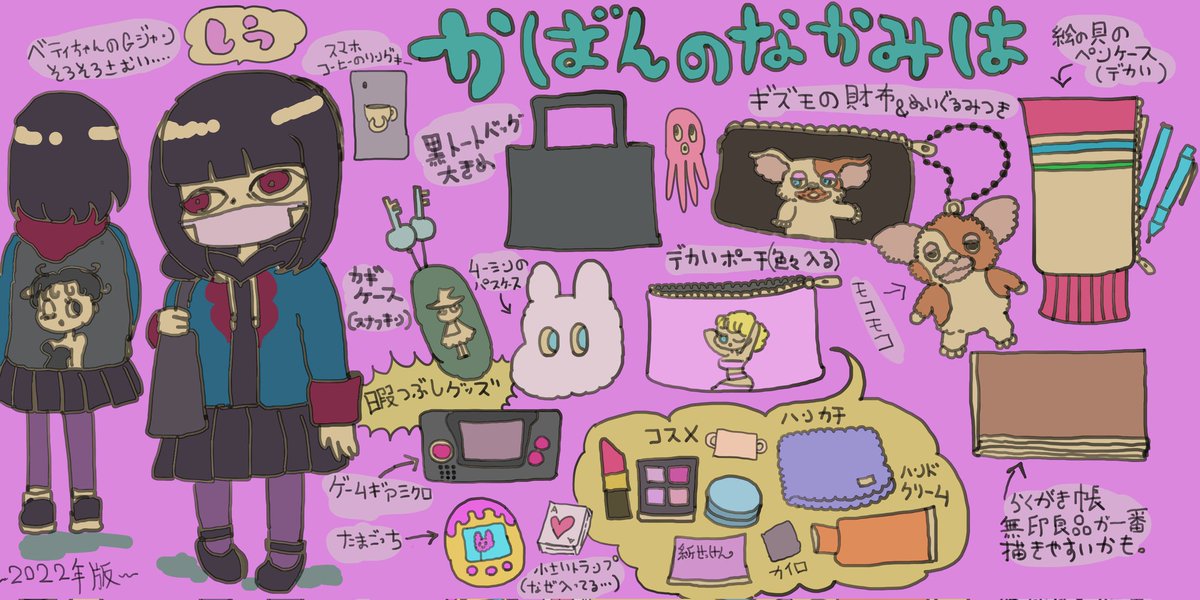 ベティちゃんのGジャン
そろそろさむい....
しう
スマホ
コーヒーのリングキー
かばんのなかみは
黒トートバッグ
大きめ
ギズモの財布&ぬいぐるみつき
絵の具の
ペンケース
(デカい)
カギ
ケース
(スナフキン)
ムーミンの
パスケース
デカいポーチ(色々入る)
モコモコ
暇つぶしグッズ
ゲームギアミクロ
たまごっち
A
A
小さいトランプ
(なぜ入ってる…)
コスメ
ハンカチ
ハンド
クリーム
紙せっけん
カイロ
らくがき帳
無印良品が一番
描きやすいかも。
~2022年版~